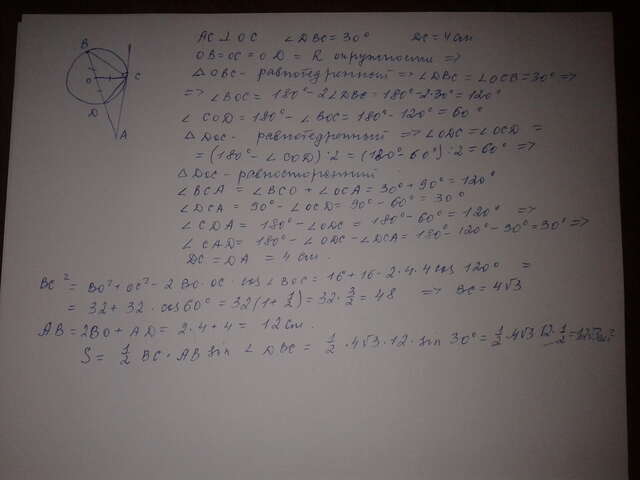 AC ⊥ OC ∠DBC = 30° DC = 4 см
OB = OC = OD = R окружности =>
△OBC - равнобедренный => ∠DBC = ∠OCB = 30° =>
=> ∠BOC = 180° - 2∠DBC = 180° - 2·30° = 120°
∠COD = 180° - ∠BOC = 180° - 120° = 60°
△DOC - равнобедренный => ∠ODC = ∠OCD =
= (180° - ∠COD) : 2 = (180° - 60°) : 2 = 60° =>
△DOC - равносторонний
∠BCA = ∠BCO + ∠OCA = 30° + 90° = 120°
∠DCA = 90° - ∠OCD = 90° - 60° = 30°
∠CDA = 180° - ∠ODC = 180° - 60° = 120° =>
∠CAD = 180° - ∠ODC - ∠DCA = 180° - 120° - 30° = 30° =>
DC = DA = 4 см.
BC² = BO² + OC² - 2 BO · OC · cos ∠BOC = 16 + 16 - 2·4·4 cos 120° =
= 32 + 32 · cos 60° = 32(1 + 1/2) = 32 · 3/2 = 48 => BC = 4√3
AB = 2BO + AD = 2·4 + 4 = 12 см.
S = 1/2 BC · AB sin ∠DBC = 1/2 · 4√3 · 12 · sin 30° = 1/2 · 4√3 · 12 · 1/2 =
B
O
C
D
A